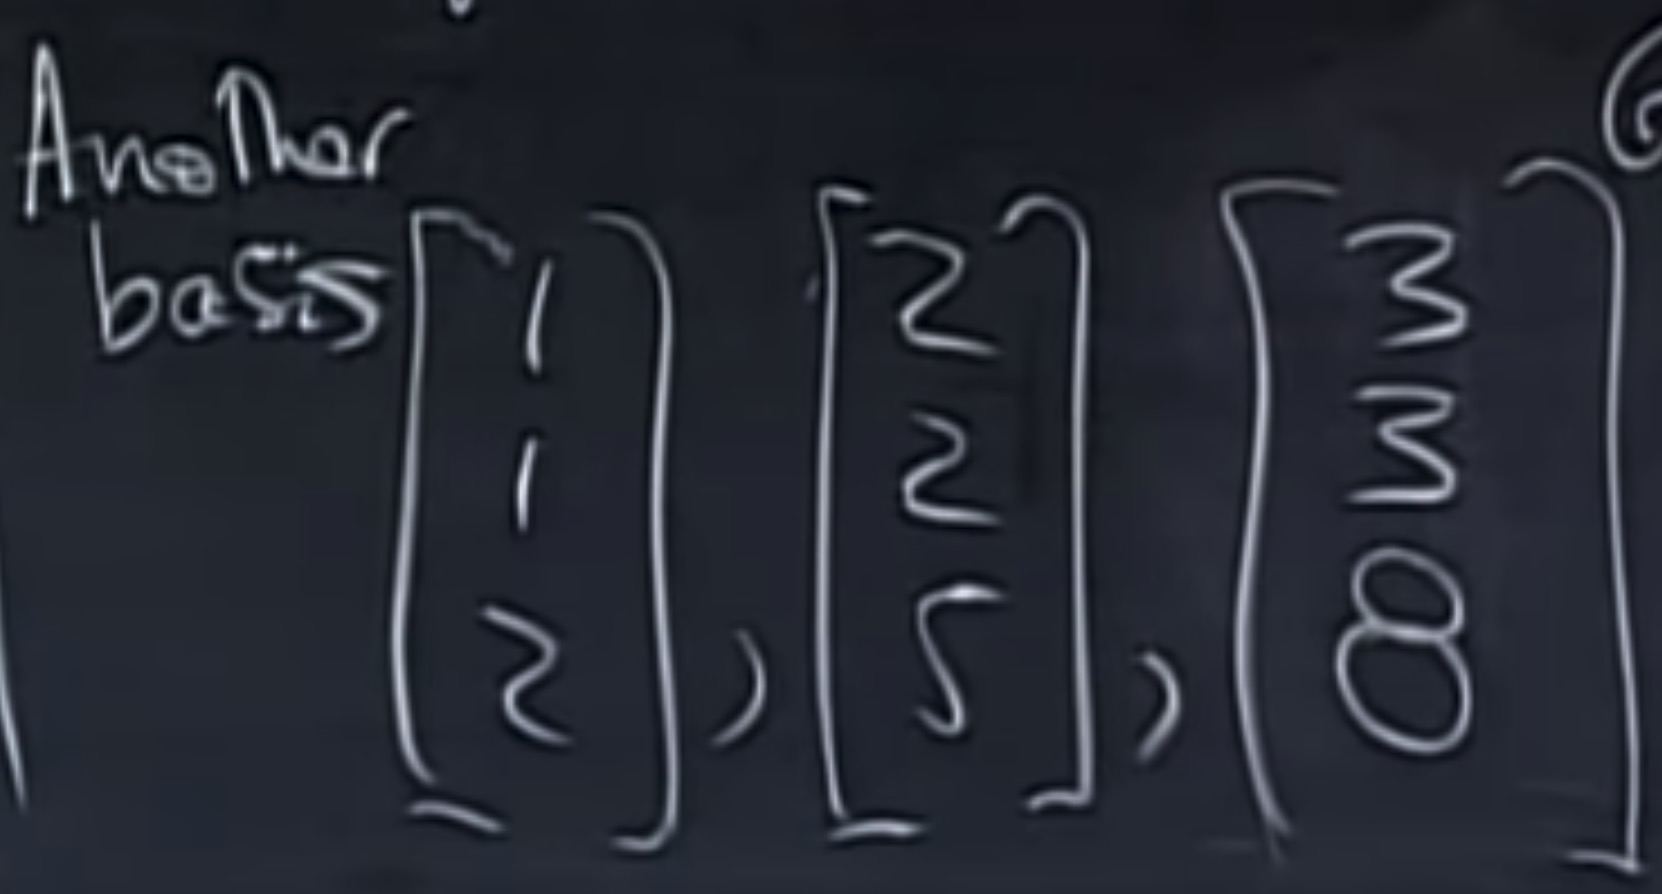 Another
basis
[1 1 2], [2 2 5], [3 3 8]